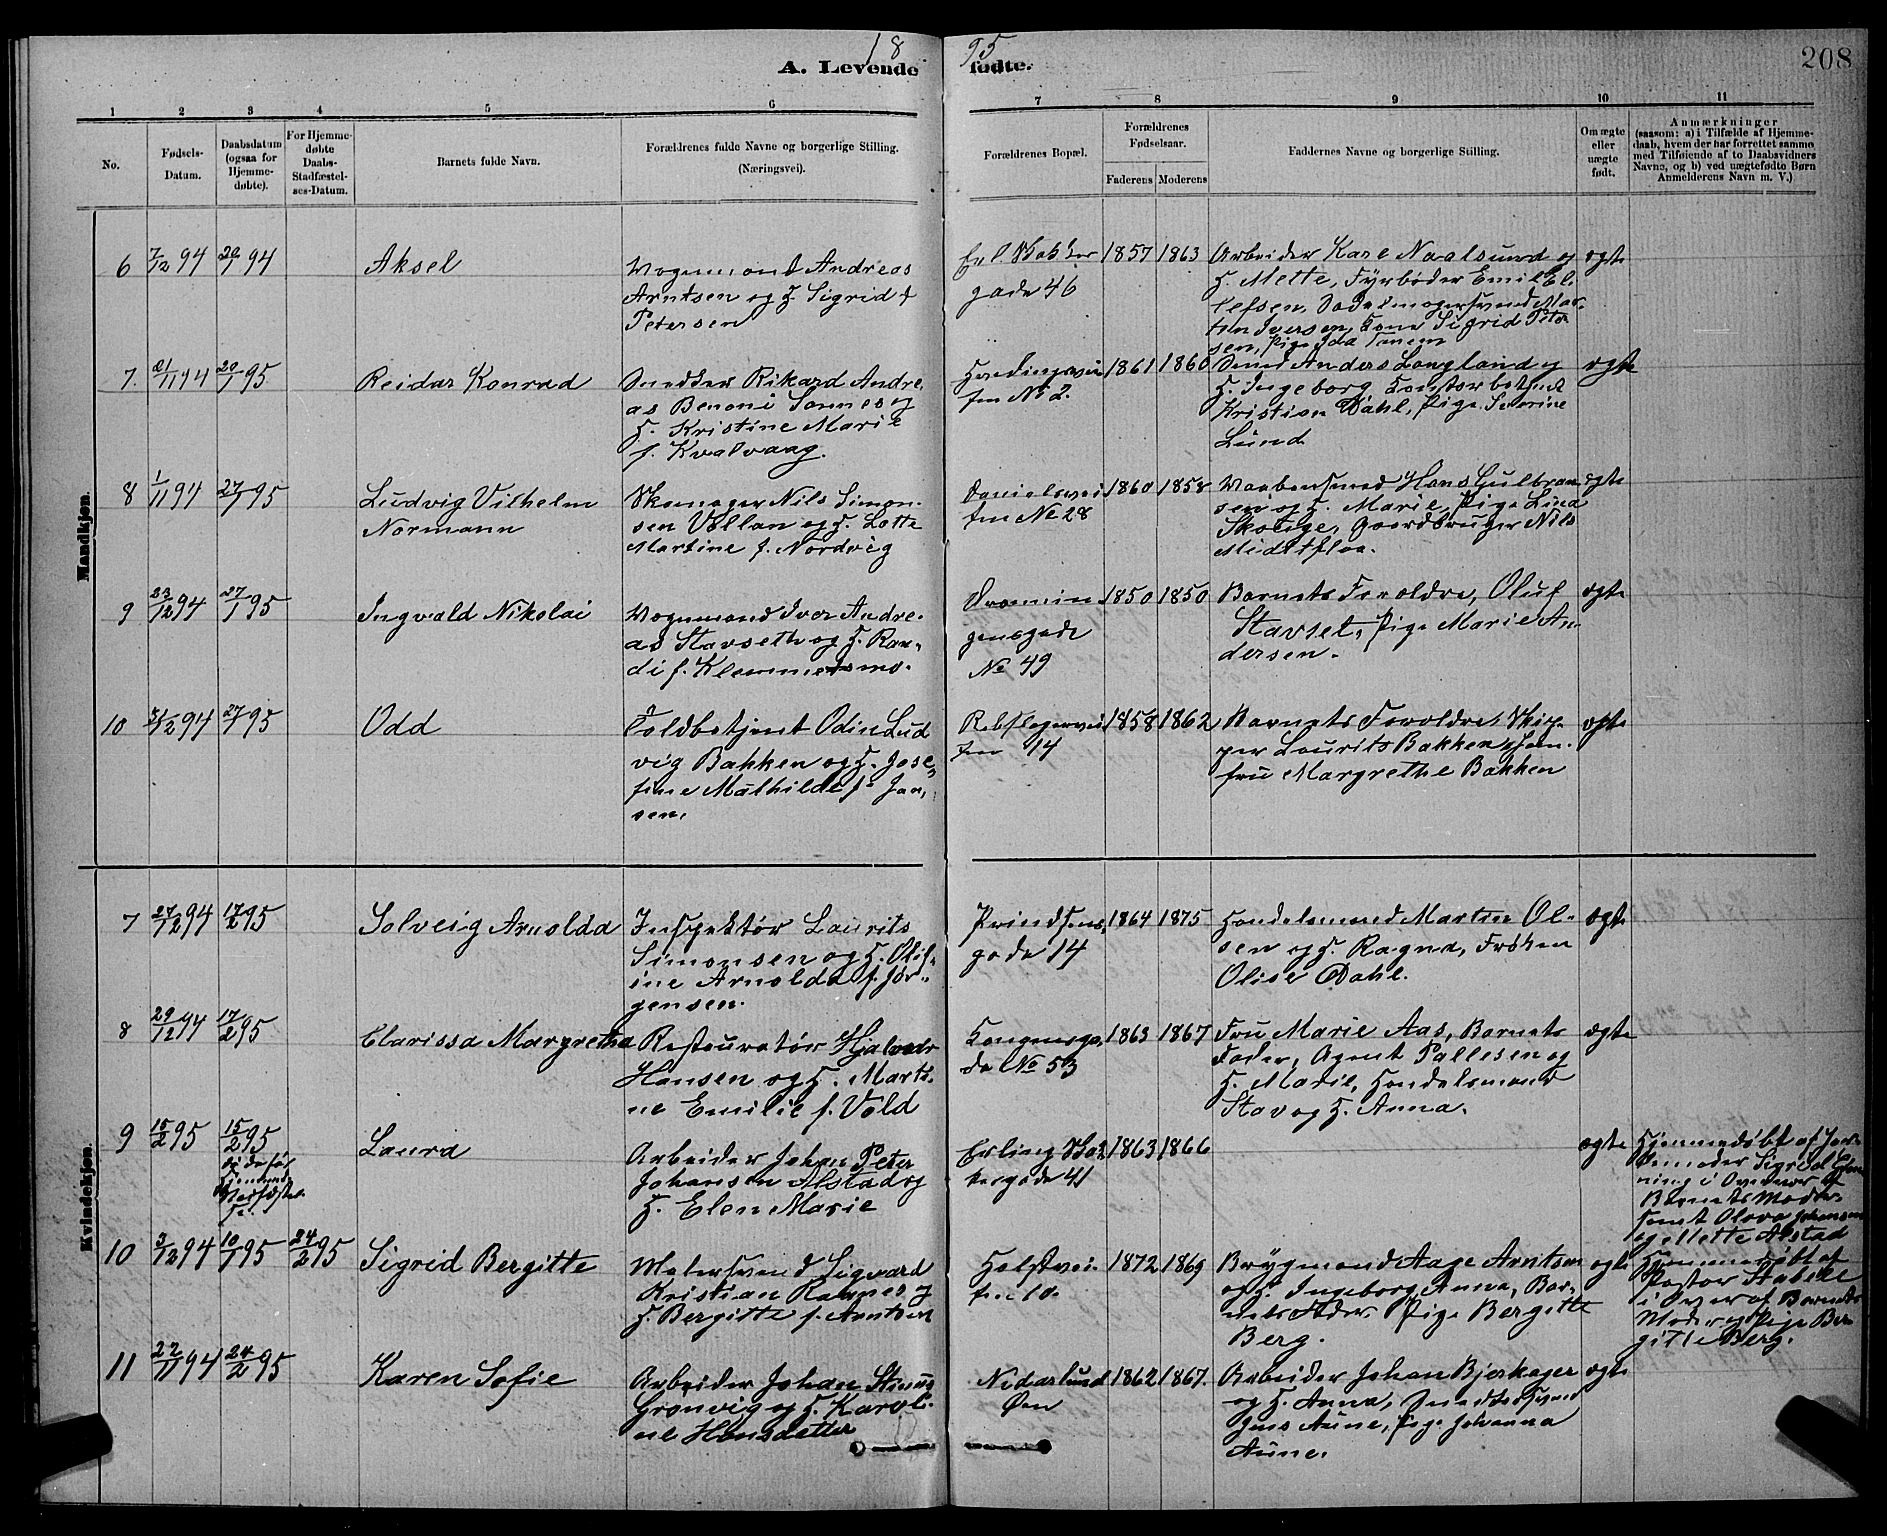 1895
208
A. Levende fødte.
1 2 3 4 5 6 7 8 9 10 11
No.
Fødsels-Datum.
Daabsdatum (ogsaa for Hjemme-døbte).
For Hjemme-døbte Daabs-Stadfæstel-ses-Datum.
Barnets fulde Navn.
Forældrenes fulde Navne og borgerlige Stilling. (Næringsvei).
Forældrenes Bopæl.
Forældrenes Fødselsaar.
Faderens Moderens
Faddernes Navne og borgerlige Stilling.
Om ægte eller uægte født.
Anmærkninger
(saasom: a) i Tilfælde af Hjemme-
daab, hvem der har forrettet samme
med Tilføiende af to Daabsvidners
Navne, og b) ved uægtefødte Børn
Anmelderens Navn m. V.)
Mandkjøn.
6 7/12 94 20/1 94 Aksel
Vognmand Andreas
Arntsen og H. Sigrid f
Petersen
Erl. Bakker
gade 46
1857 1863
Arbeider Karl Naalsund og
H. Mette, Fyrbøder Emil El
lefsen, Sadelmagersvend Mar
tin Iversen, Kone Sigrid Peter
sen, Pige Ida
ægte
7. 11 94 20/1 95 Reidar Konrad
Snedker Rikard Andre
as Benoni Sannes og
H. Kristine Marie
f. Kvalvaag.
ten No 2.
1861 1860
Smed Anders Langland og
H. Ingeborg, Kontorbetjent
Kristian Dahl, Pige Severine
Lund
ægte
8 1/11 94 27/1 95 Ludvig Vilhelm
Normann
Skomager Nils Simon
sen Vollan og H. Lotte
Martine f. Nordvig
Danielsvei
ten No 28
1860 1858
Vaabensmed Hans Gulbran
sen og H. Marie, Pige Lina
Skauge, Gaardbruger Nils
Midtflaa.
ægte
9 23/12 94 27/1 95 Ingvald Nikolai
Vognmand Ivar Andre
as Stavseth og H. Ran
di f. Klemmetsmo.
Dronnin
gensgade
No 49
1850 1850
Barnets Forældre, Oluf
Stavset, Pige Marie An
dersen.
ægte
10 /12 94 27/1 95 Odd
Toldbetjent Odin Lud
vig Bakken og H. Jose
fine Mathilde f. Jan
sen.
Rebslagervei
ten 14
1858 1862
Barnets Forældre, Skip
per Laurits Bakken, Jom
fru Margrethe Bakken
ægte
Kvindekjøn.
7 27/12 94 17/2 95 Solveig Arnolda
Inspektør Laurits
Simonsen og H. Olif
ine Arnolda f. Jør
gensen.
Prindsens
gade 14
1864 1875
Handelsmand Martin Ol
sen og H. Ragna, Frøken
Olise Dahl.
ægte
8 29/12 94 17/2 95 Clarissa Margretha
Restauratør Hjalmar
Hansen og H. Marti
ne Emilie f. Vold
Kongensga
de No 53
1863 1867
Fru Marie Aas, Barnets
Fader, Agent Pallesen og
H. Marie, Handelsmand
Stav og H. Anna.
ægte
9 15/2 95 15/2 95
Laura
Arbeider Johan Peter
Johansen Alstad og
H. Elen Marie
Erling Bak
kergade 41
1863 1866
ægte
Hjemmedøbt af Jor
demoder Sigrid
ning i Overvær af
Barnets Moder
samt Olava Johansen
og Mette Alstad
10 3/12 94 10/1 95 24/2 95 Sigrid Bergitte
Malersvend Sigvard
Kristian Rannes og
H. Bergitte f. Arntsen
Holstvei
ten 10.
1872 1869
Brygmand Aage Arntsen
og H. Ingeborg Anna, Bar
nets Fader, Pige Bergitte
Berg.
ægte
Hjemmedøbt af
Pastor Stabell
i Overvær af Barnets
Moder og Pige Ber
gitte Berg.
11 22/11 94 24/2 95 Karen Sofie
Arbeider Johan
Grønvig og H. Karoli
ne Hansdatter
Nidarlund
Øen
1862 1867.
Arbeider Johan Bjerkager
og H. Anna, Snedkersvend
Jens Aune, Pige Johanna
Aune.
ægte